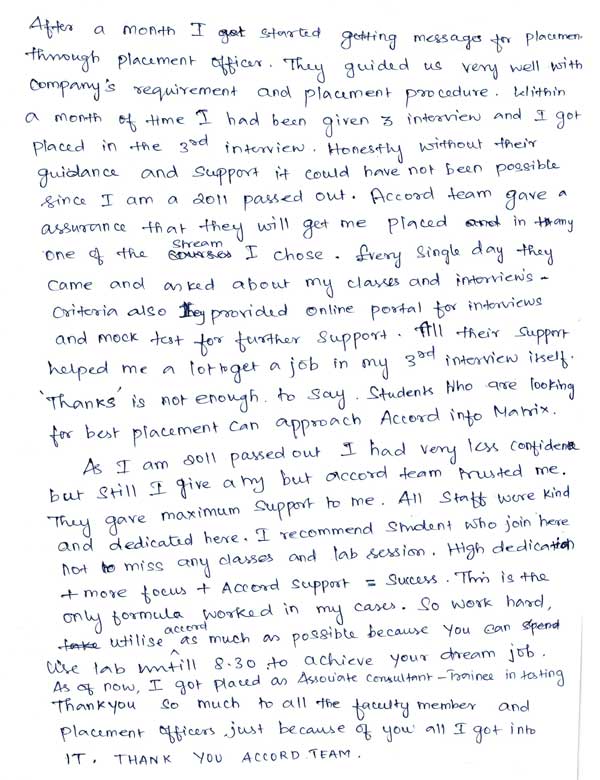 After a month I got started getting messages for placemen
through placement officer. They guided us very well with
company's requirement and placement procedure. Within
a month of time I had been given 3 interview and I got
placed in the 3rd interview. Honestly without their
guidance and support it could have not been possible
since I am a 2011 passed out. Accord team gave a
assurance that they will get me placed and in any
one of the courses stream I chose. Every single day they
came and asked about my classes and interview's -
criteria also they provided online portal for interviews
and mock test for further support. All their support
helped me a lot to get a job in my 3rd interview itself.
'Thanks' is not enough to say. Students who are looking
for best placement can approach Accord info Matrix.
As I am 2011 passed out I had very less confidence
but still I give a try but accord team trusted me.
They gave maximum support to me. All staff were kind
and dedicated here. I recommend student who join here
not to miss any classes and lab session. High dedication
+ more focus + Accord support = Success. This is the
only formula worked in my cases. So work hard,
take utilise accord as much as possible because you can spend
use lab untill 8.30 to achieve your dream job.
As of now, I got placed as Associate consultant - Trainee in testing
Thankyou so much to all the faculty member and
placement officers just because of you all I got into
IT. THANK YOU ACCORD TEAM.